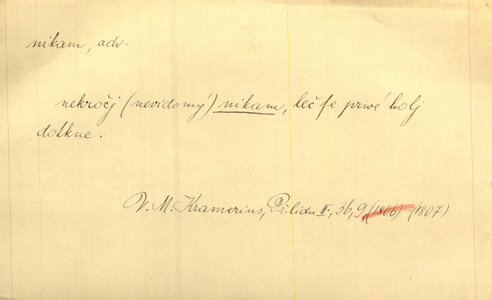 nikam, adv.
nekročj (nevidomý) nikam, leč se prwé holj
dotkne.
V. M. Kramerius, Př. lidu II., 36, 9 (1806) (1807)